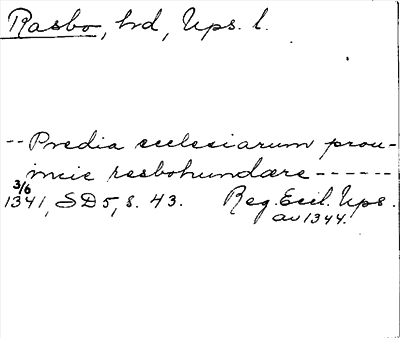 Rasbo, hd, Ups. l.
-- Predia ecclesiarum prou-
incie rasbohundære ------
3/6
1341, SD 5, s. 43. Reg. Eccl. Ups.
av 1344.